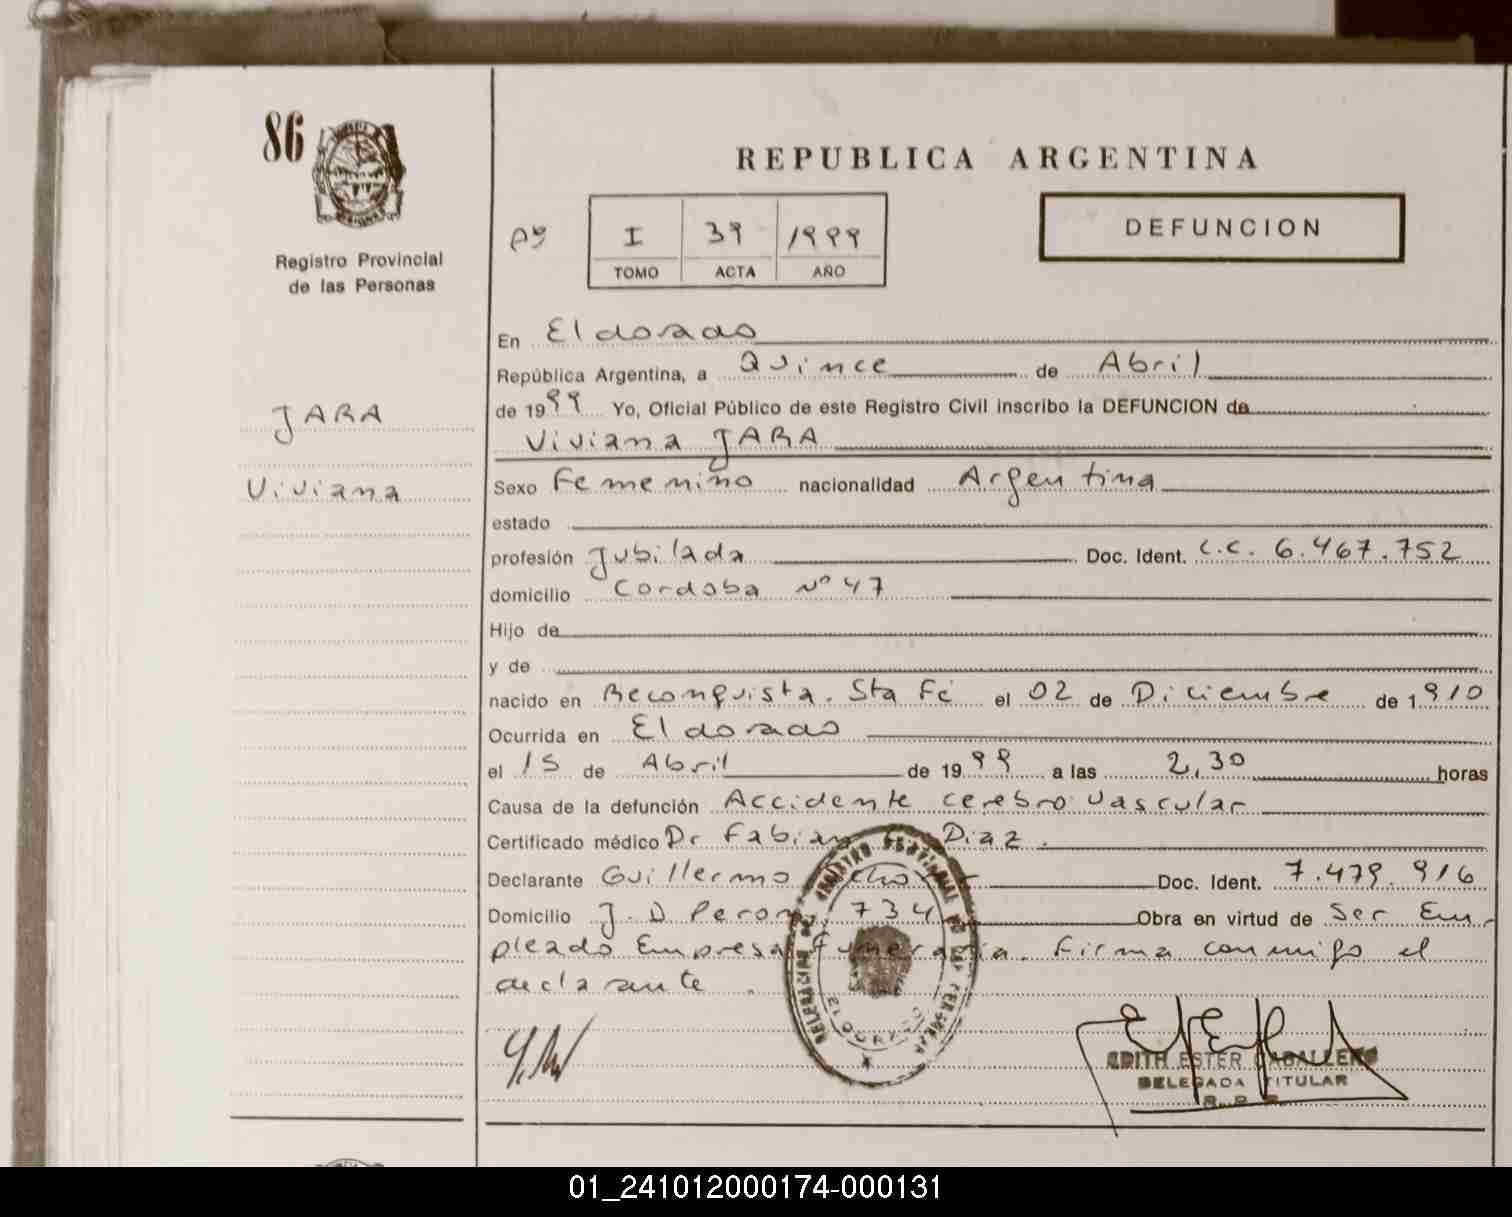 86
REPUBLICA ARGENTINA
I 39 1999
TOMO ACTA AÑO
DEFUNCION
Registro Provincial
de las Personas
JARA
Viviana
En Eldorado
República Argentina, a Quince de Abril
de 1999 Yo, Oficial Público de este Registro Civil inscribo la DEFUNCION de
Viviana JARA
Sexo Femenino nacionalidad Argentina
estado
profesión Jubilada Doc. Ident. L.C. 6.467.752
domicilio Cordoba Nº 47
Hijo de
y de
nacido en Reconquista. Sta Fé el 02 de Diciembre de 1910
Ocurrida en Eldorado
el 15 de Abril de 1999 a las 2,30 horas
Causa de la defunción Accidente cerebro vascular
Certificado médico Dr Fabian Diaz.
Declarante Guillermo Doc. Ident. 7.479.916
Domicilio J. D Peron 734 Obra en virtud de Ser Em-
pleado Empresa Funeraria. Firma conmigo el
declarante.
EDITH ESTER CABALLERO
DELEGADA TITULAR
R. P. P.
01_241012000174-000131